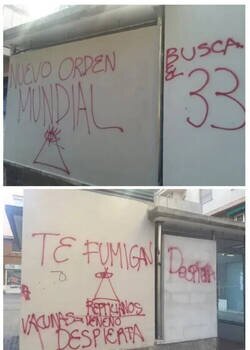 NUEVO ORDEN
MUNDIAL
BUSCA
EL
33
TE FUMIGAN
DESPIERTA
REPTILIANOS
VACUNAS=VENENO
DESPIERTA